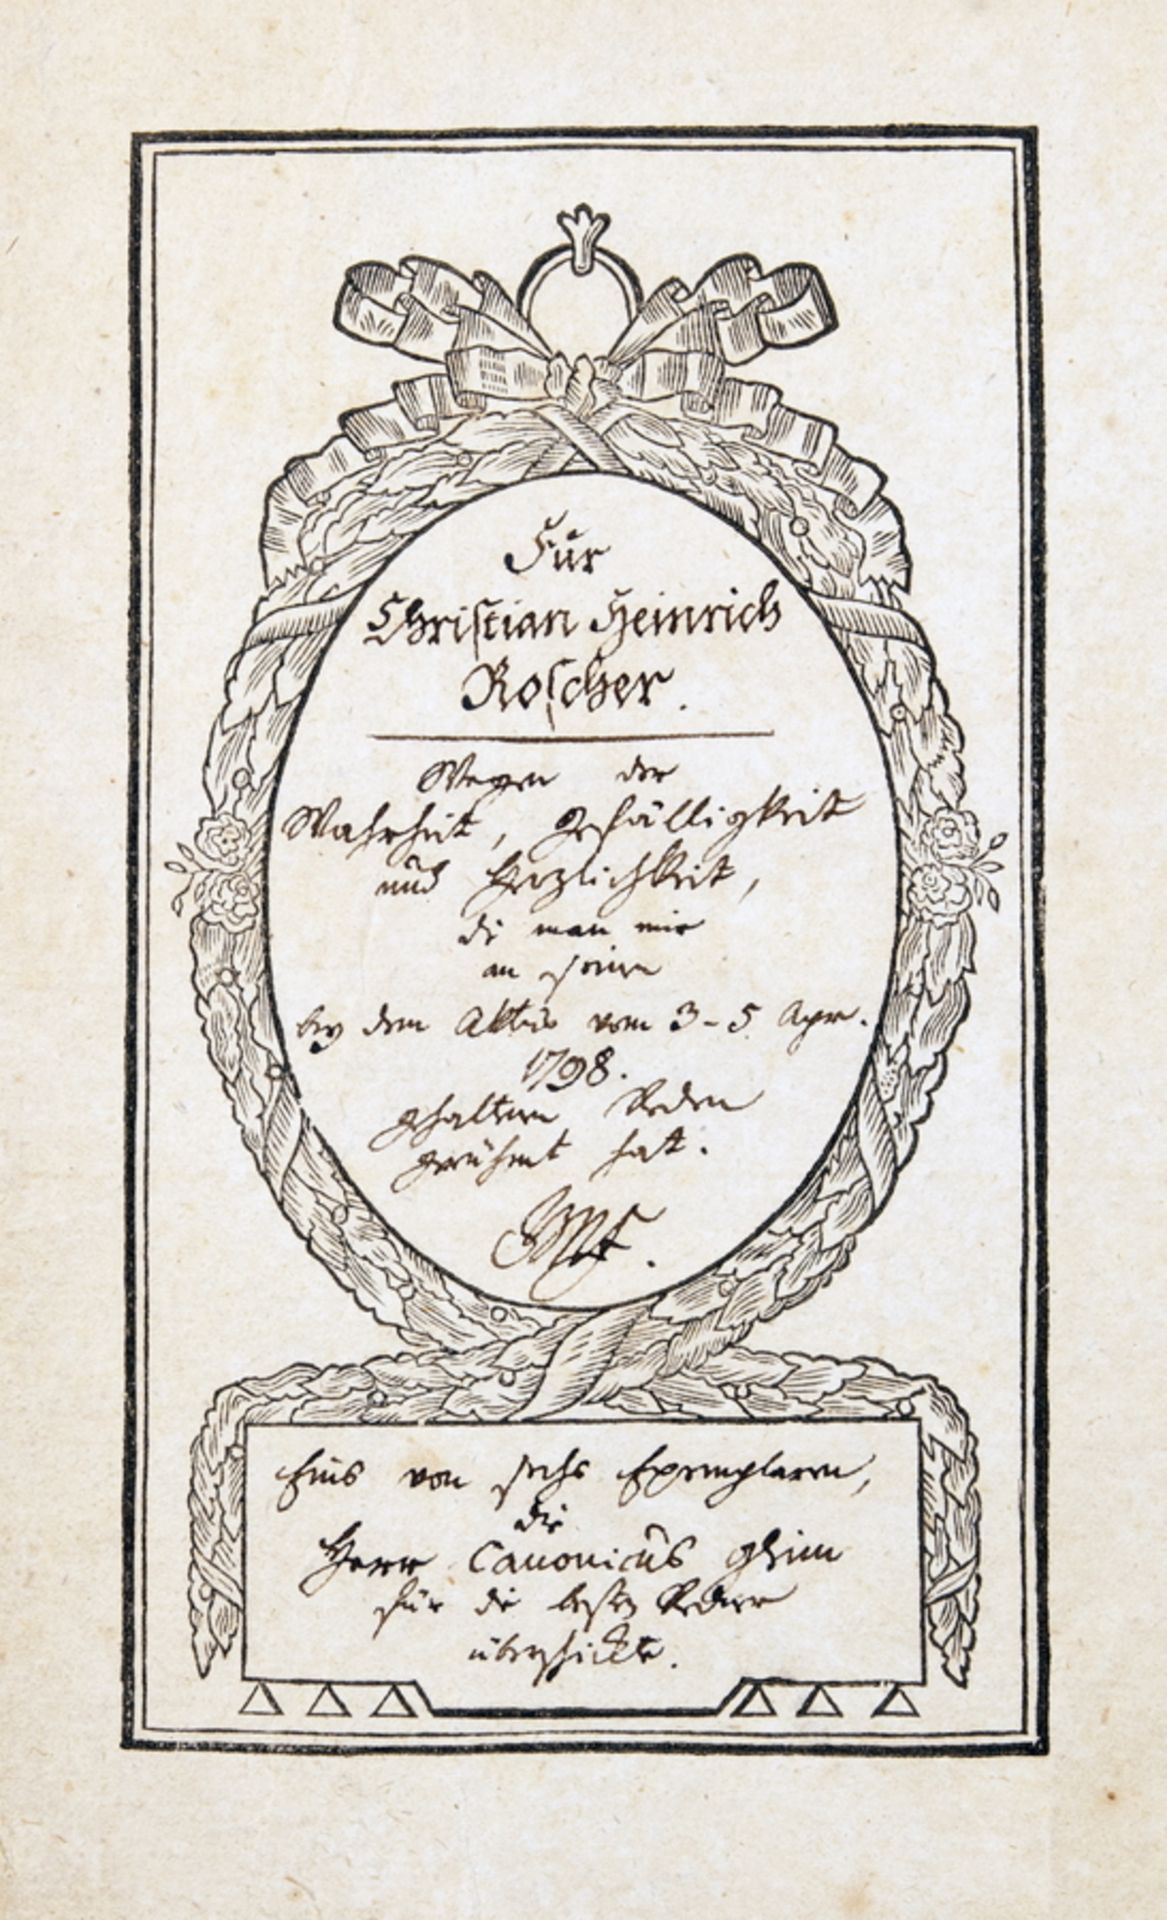 Für
Christian Heinrich
Roscher.
Wegen der
Wahrheit, Gefälligkeit
und Herzlichkeit,
die man mir
an seinen
bey dem Aktus vom 3-5 Apr.
1798.
gehaltenen Reden
gerühmt hat.
Eins von sechs Exemplaren,
die
Herr Canonicus Gleim
für die besten Redner
überschickte.